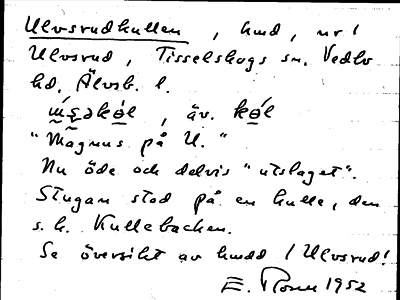 Ulvsrudkullen, hmd, nr 1
Ulvsrud, Tisselskogs sn. Vedbo
hd. Älvsb. l.
, äv.
"Magnus på U."
Nu öde och delvis "utslaget".
Stugan stod på en kulle, den
s. k. Kullebacken.
Se översikt av hmdd / Ulvsrud!
E. 1952